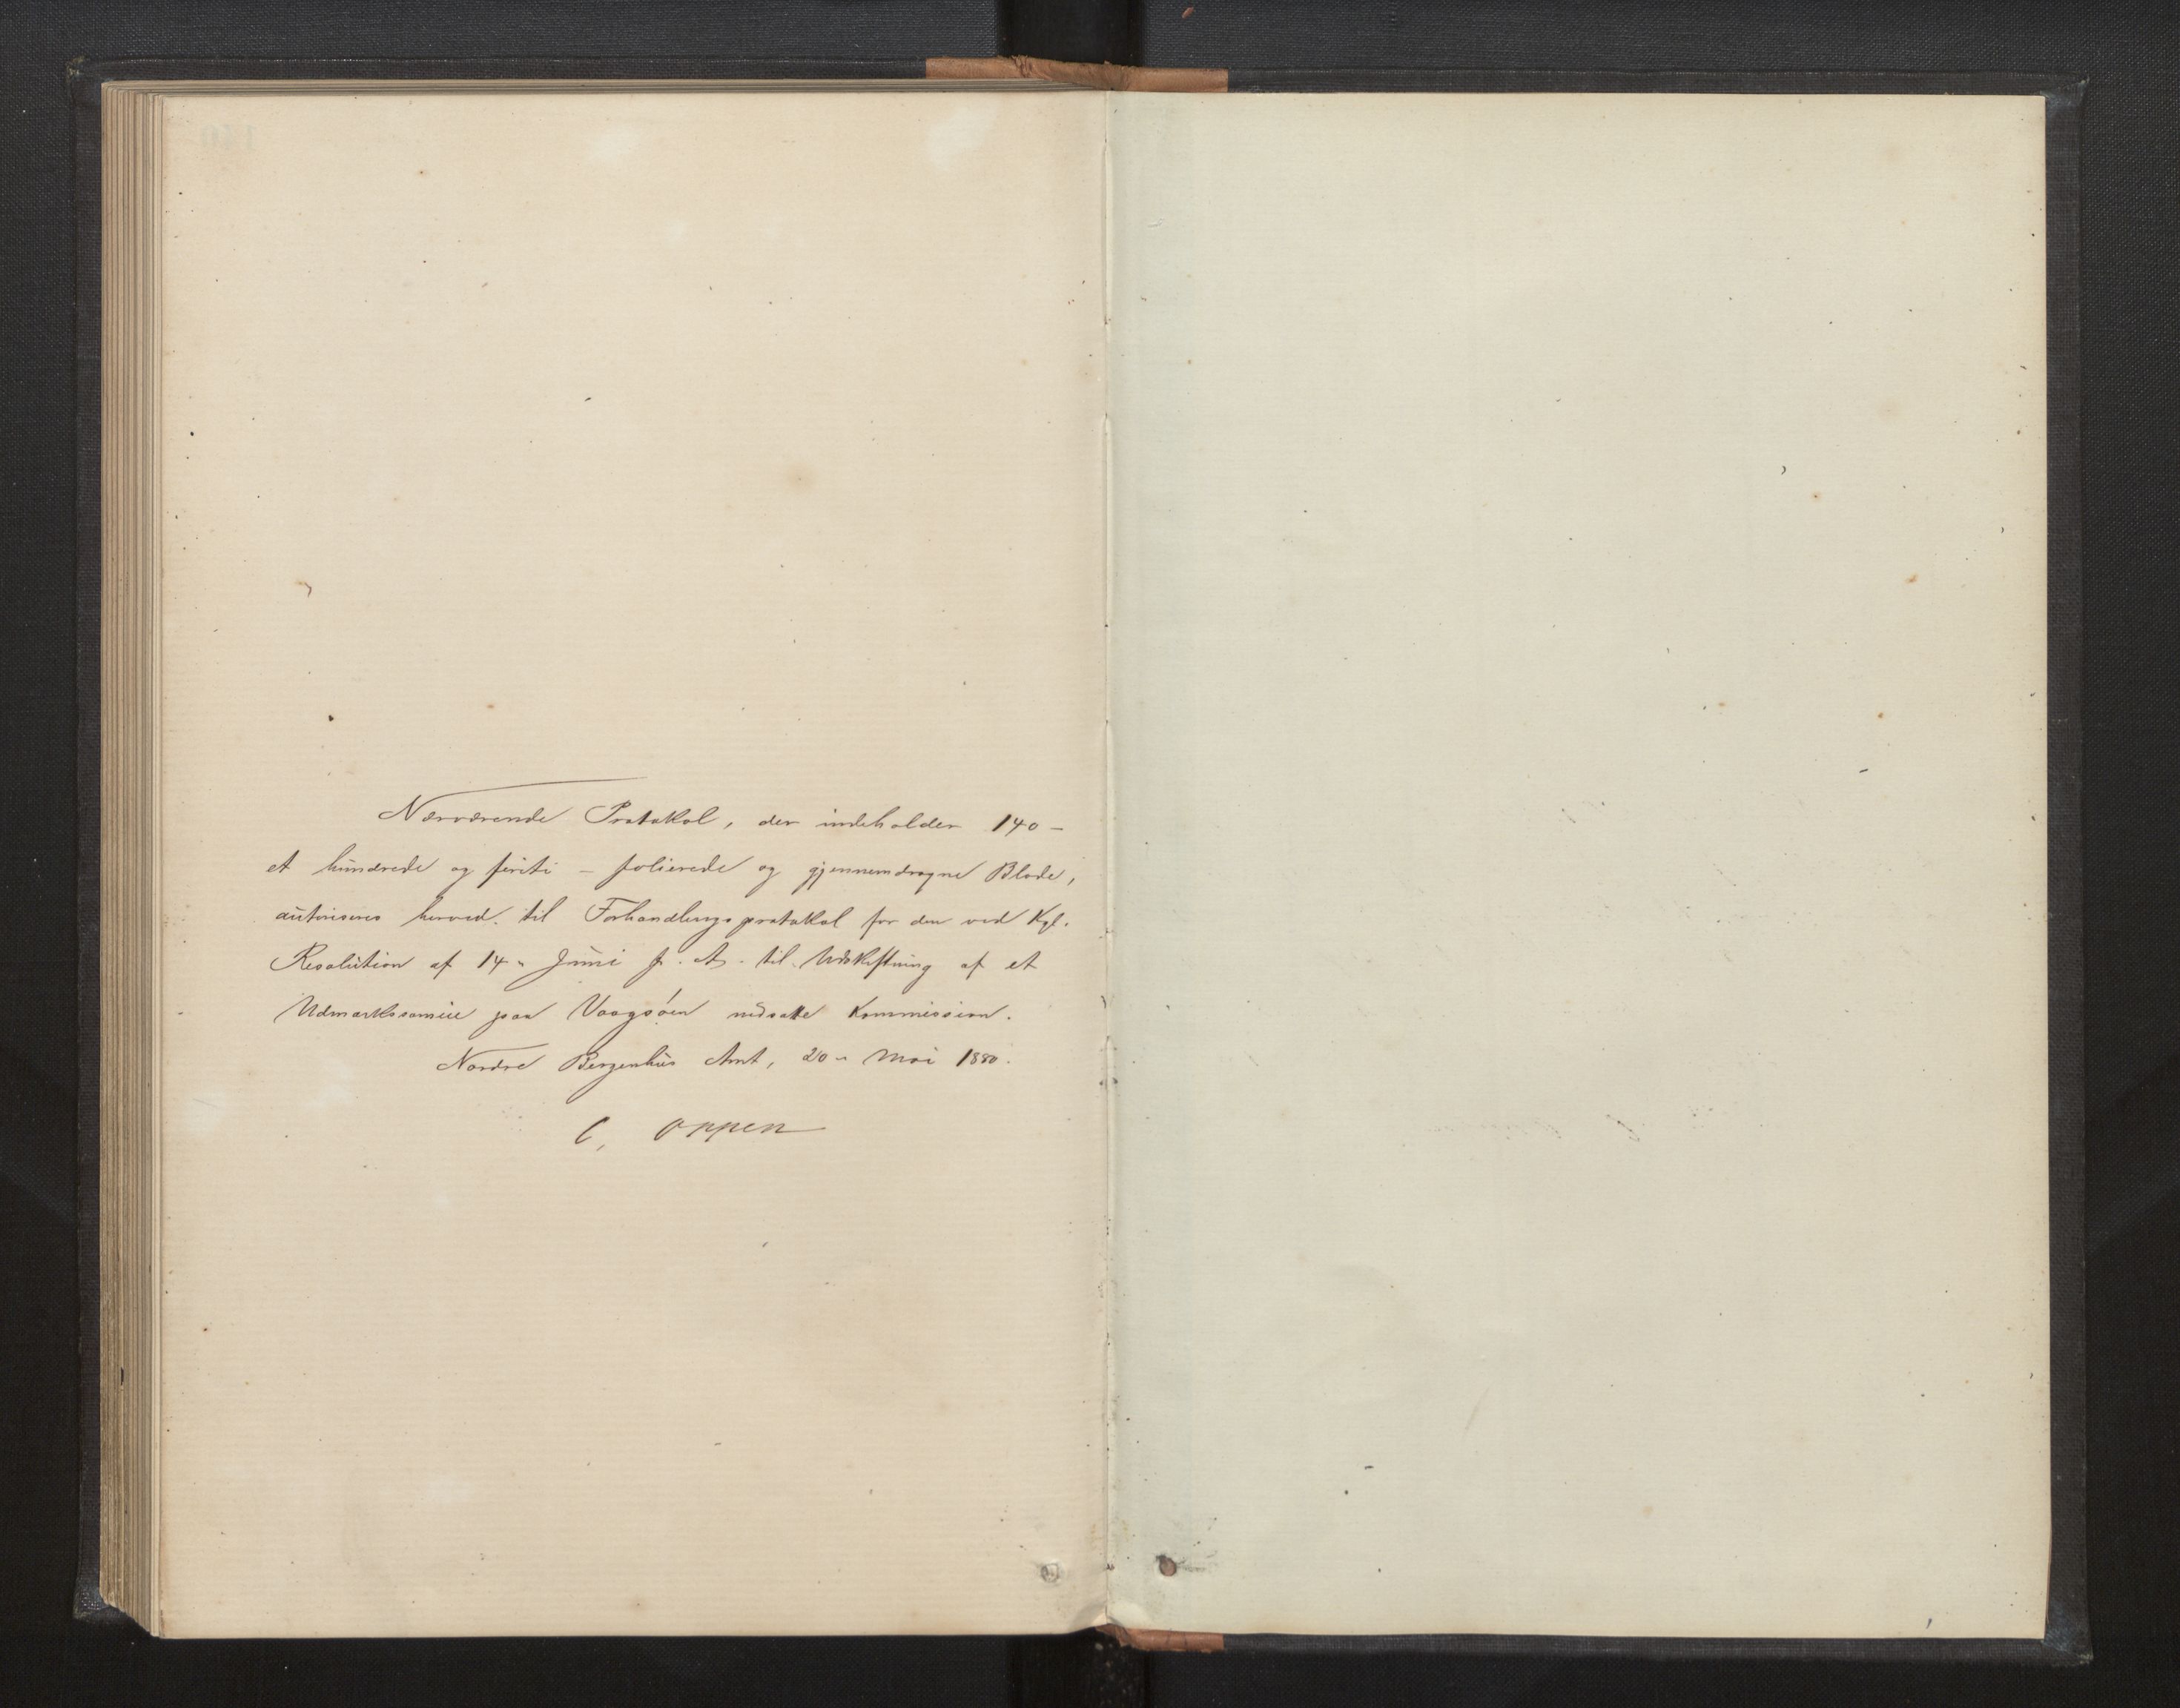 Nærværende Protokol, der indeholder 140 –
et hundrede og firti – folierede og gjennemdragne Blade,
autoriseres herved til Forhandlingsprotokol for den ved Kgl.
Resolution af 14" Juni f. A. til Udskiftning af et
Udmarkssameie paa Vaagsøen nedsatte Kommission.
Nordre Bergenhus Amt, 20" Mai 1880.
C. Oppen